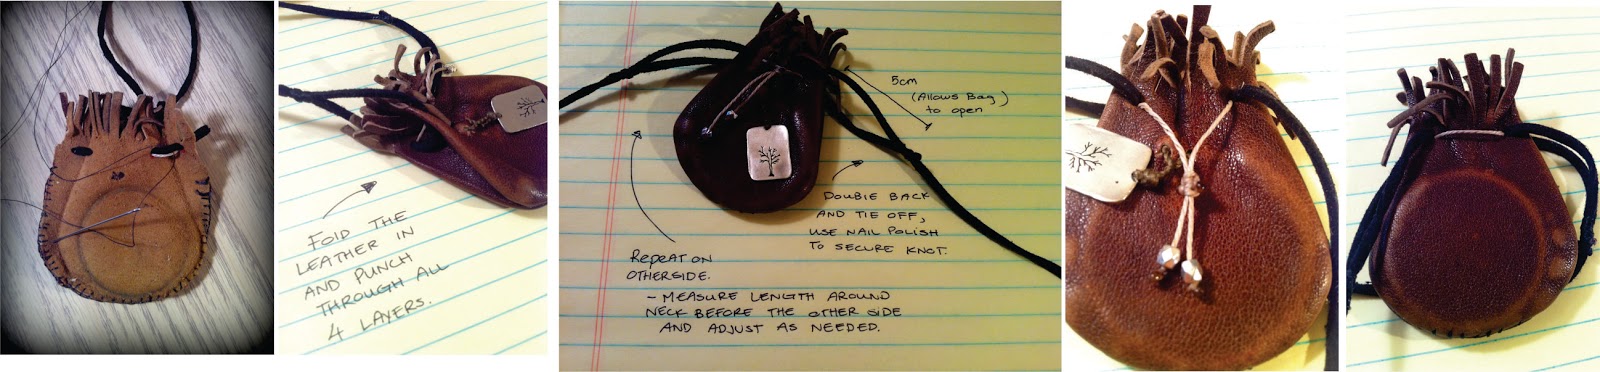 FOLD THE
LEATHER IN
AND PUNCH
THROUGH ALL
4 LAYERS.
5cm
(Allows Bag)
to open
REPEAT ON
OTHERSIDE.
- MEASURE LENGTH AROUND
NECK BEFORE THE OTHER SIDE
AND ADJUST AS NEEDED.
DOUBLE BACK
AND TIE OFF,
USE NAIL POLISH
TO SECURE KNOT.